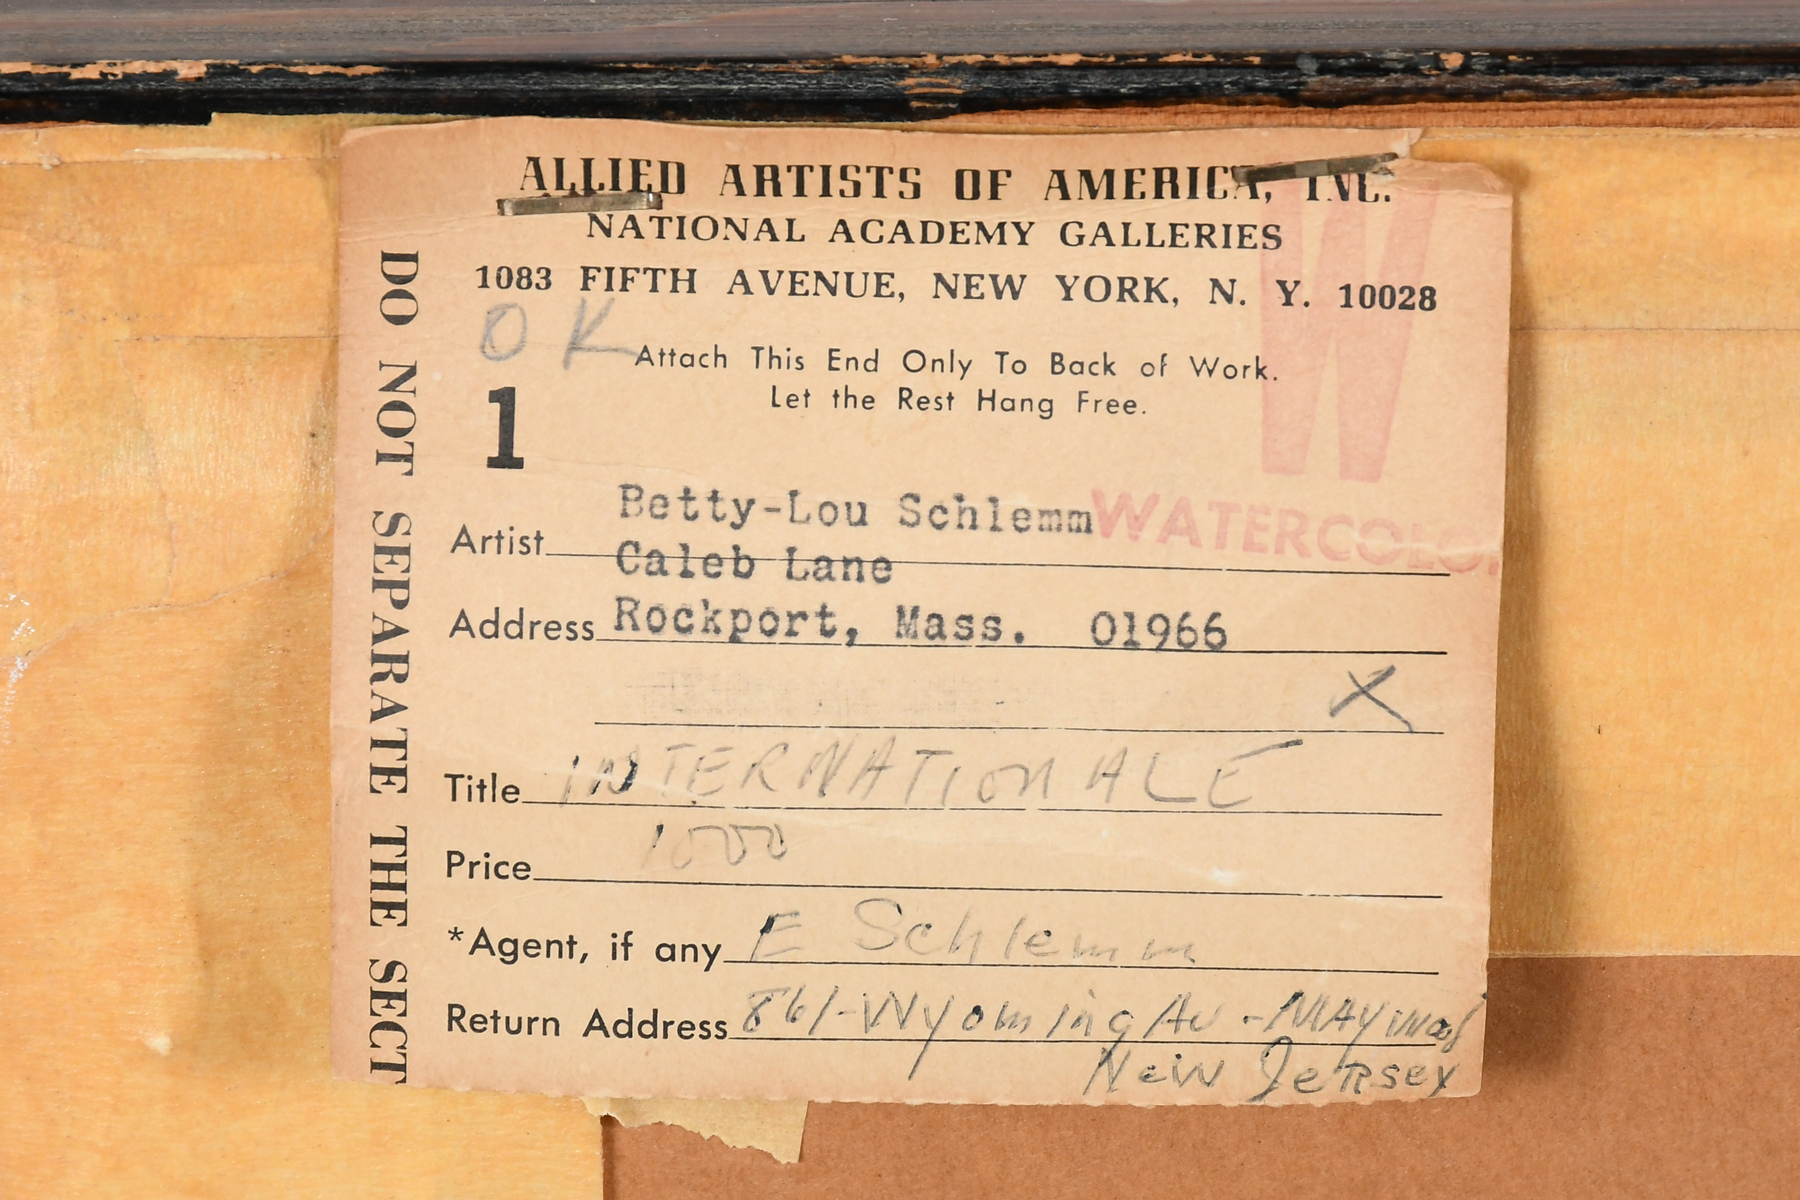 ALLIED ARTISTS OF AMERICA, INC.
NATIONAL ACADEMY GALLERIES
1083 FIFTH AVENUE, NEW YORK, N. Y. 10028
OK
Attach This End Only To Back of Work.
Let the Rest Hang Free.
1
W
WATERCOLO
Artist Betty-Lou Schlemm
Caleb Lane
Address Rockport, Mass. 01966
X
Title INTERNATIONALE
Price 1000
*Agent, if any E Schlemm
Return Address 861-Wyoming Av - MAYWood
New Jersey
DO NOT SEPARATE THE SECT